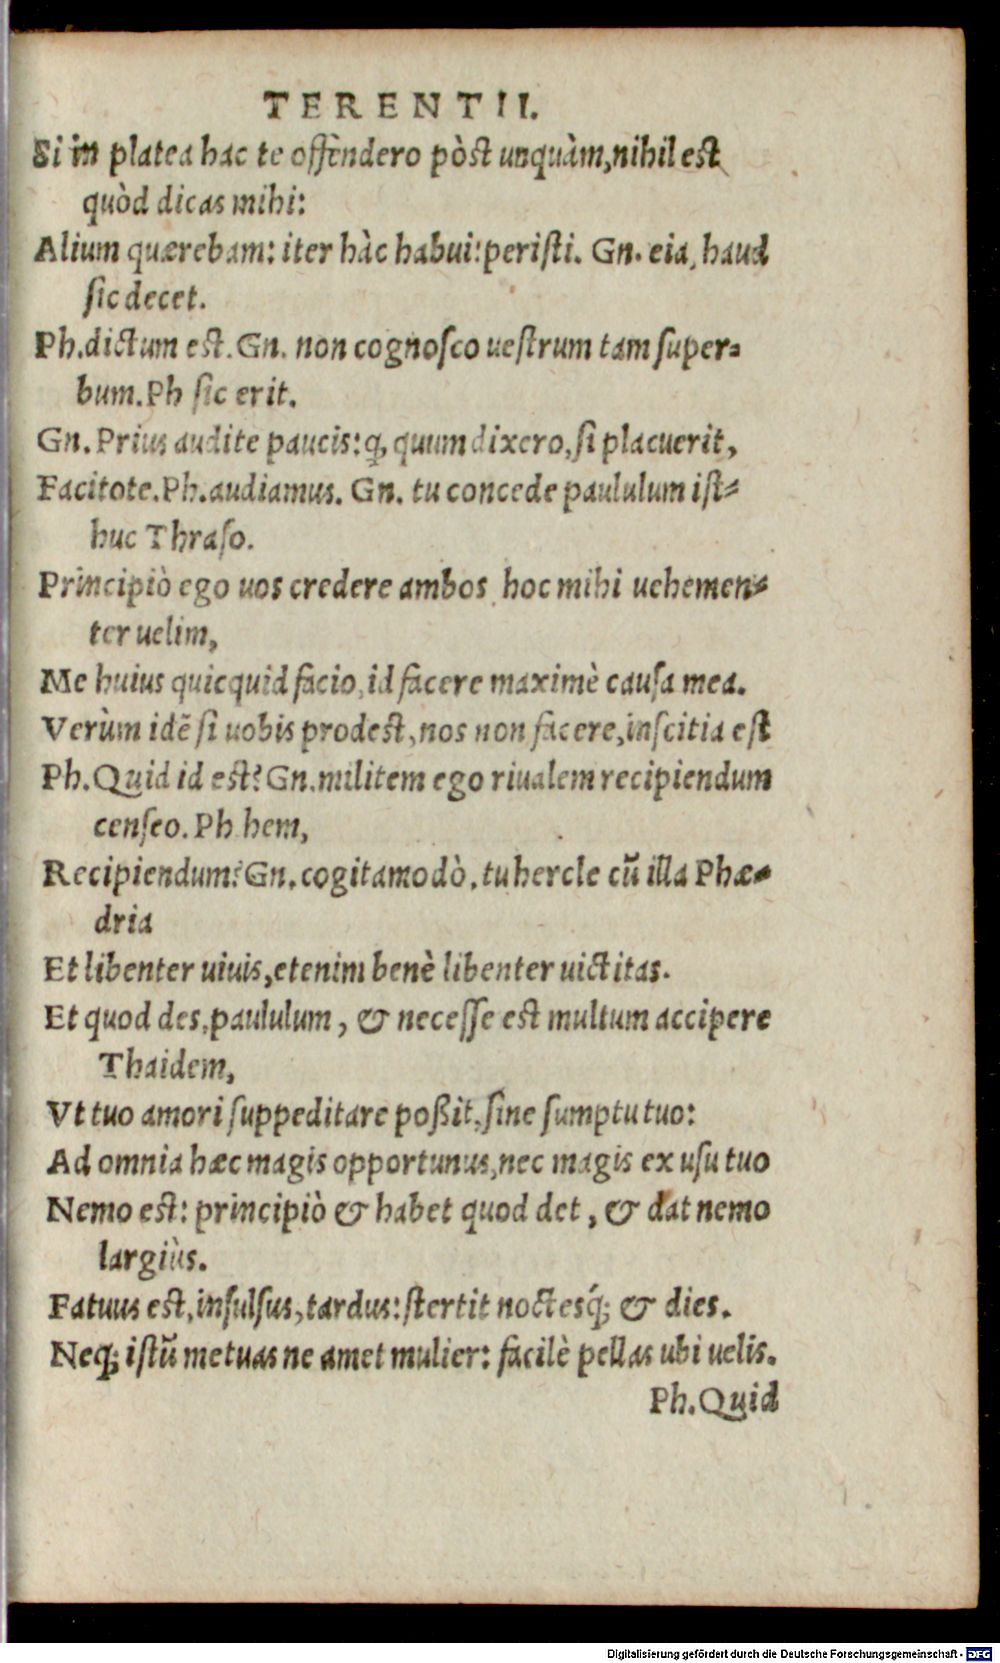 TERENTII.
Si in platea hac te offendero pòst unquàm, nihil est
quòd dicas mihi:
Alium quærebam: iter hàc habui: peristi. Gn. eia, haud
sic decet.
Ph. dictum est. Gn. non cognosco uestrum tam super-
bum. Ph sic erit.
Gn. Prius audite paucis: q̨, quum dixero, si placuerit,
Facitote. Ph. audiamus. Gn. tu concede paululum ist-
huc Thraso.
Principiò ego uos credere ambos hoc mihi uehemen-
ter uelim,
Me huius quicquid facio, id facere maximè causa mea.
Verùm idē si uobis prodest, nos non facere, inscitia est
Ph. Quid id est? Gn. militem ego riualem recipiendum
censeo. Ph hem,
Recipiendum? Gn. cogita modò. tu hercle cū illa Phæ-
dria
Et libenter uiuis, etenim benè libenter uictitas.
Et quod des, paululum, & necesse est multum accipere
Thaidem,
Vt tuo amori suppeditare poßit, sine sumptu tuo:
Ad omnia hæc magis opportunus, nec magis ex usu tuo
Nemo est: principiò & habet quod det, & dat nemo
largiùs.
Fatuus est, insulsus, tardus: stertit noctesq́; & dies.
Neq; istū metuas ne amet mulier: facilè pellas ubi uelis.
Ph. Quid
Digitalisierung gefördert durch die Deutsche Forschungsgemeinschaft - DFG